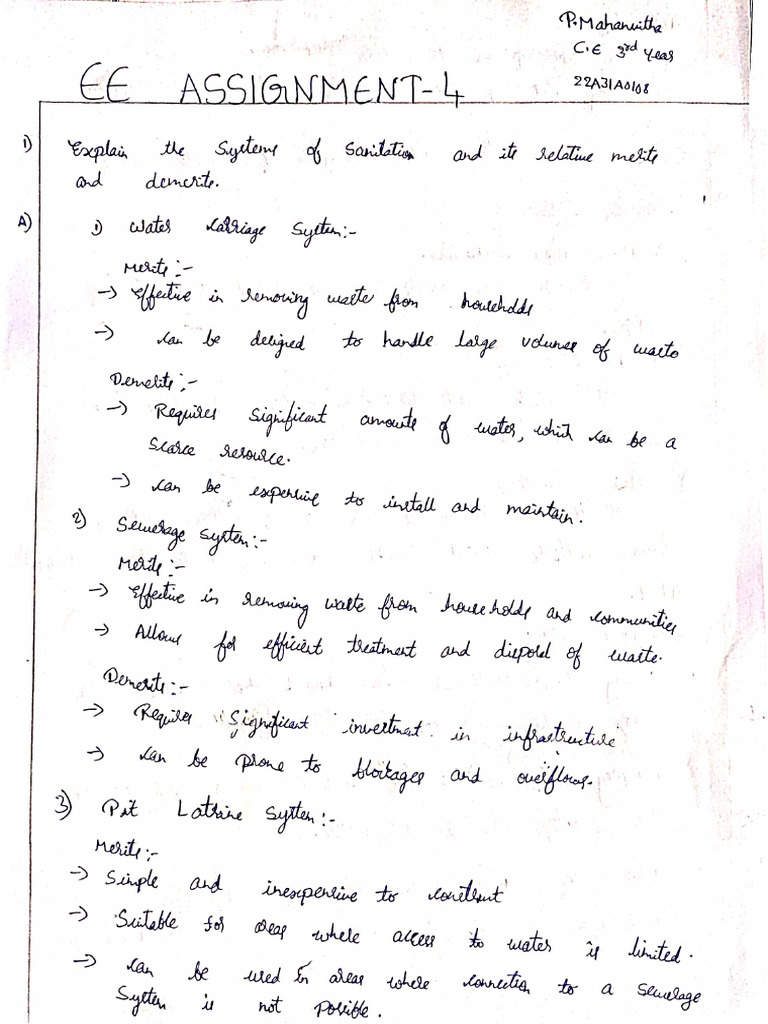 P. Mahanvitha
C.E 3rd Year
22A31A0108
EE ASSIGNMENT-4
1) Explain the Systems of Sanitation and its relative merits
and demerits.
A) 1) Water Carriage System:-
Merits:-
→ Effective in removing waste from households
→ Can be designed to handle large volumes of waste
Demerits:-
→ Requires significant amounts of water, which can be a
scarce resource.
→ Can be expensive to install and maintain.
2) Sewerage System:-
Merits:-
→ Effective in removing waste from households and communities
→ Allows for efficient treatment and disposal of waste.
Demerits:-
→ Requires significant investment in infrastructure
→ Can be prone to blockages and overflows.
3) Pit Latrine System:-
Merits:-
→ Simple and inexpensive to construct
→ Suitable for areas where access to water is limited.
→ Can be used in areas where connection to a sewerage
System is not possible.